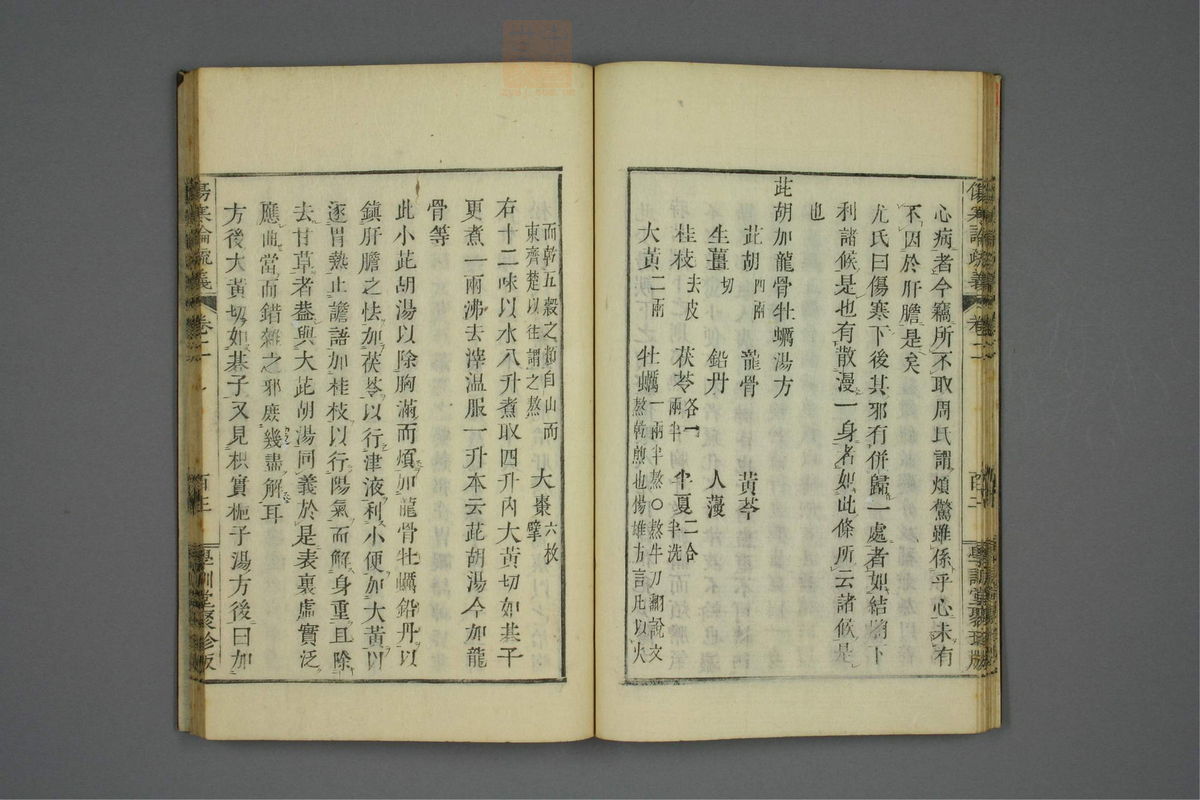 傷寒論疏義 卷二 學訓堂聚珍版
心病者今竊所不取周氏謂煩驚雖係乎心未有
不因於肝膽是矣
尤氏曰傷寒下後其邪有併歸一處者如結胸下
利諸候是也有散漫一身者如此條所云諸候是
也
茈胡加龍骨牡蠣湯方
茈胡四兩 龍骨 黃芩
生薑切 鉛丹 人薓
桂枝去皮 茯苓各一兩半 半夏二合半洗
大黃二兩 牡蠣一兩半熬〇熬牛刀翻說文熬乾煎也揚雄方言凡以火
而乾五穀之類自山而東齊楚以往謂之熬 大棗六枚擘
右十二味以水八升煮取四升內大黃切如碁子
更煮一兩沸去滓温服一升本云茈胡湯今加龍
骨等
此小茈胡湯以除胸滿而煩加龍骨牡蠣鉛丹以
鎮肝膽之怯加茯苓以行津液利小便加大黃以
逐胃熱止譫語加桂枝以行陽氣而解身重且除
去甘草者蓋與大茈胡湯同義於是表裏虛實泛
應曲當而錯雜之邪庶幾盡解耳
方後大黃切如碁子又見枳實梔子湯方後曰加
傷寒論疏義 卷二 學訓堂聚珍版